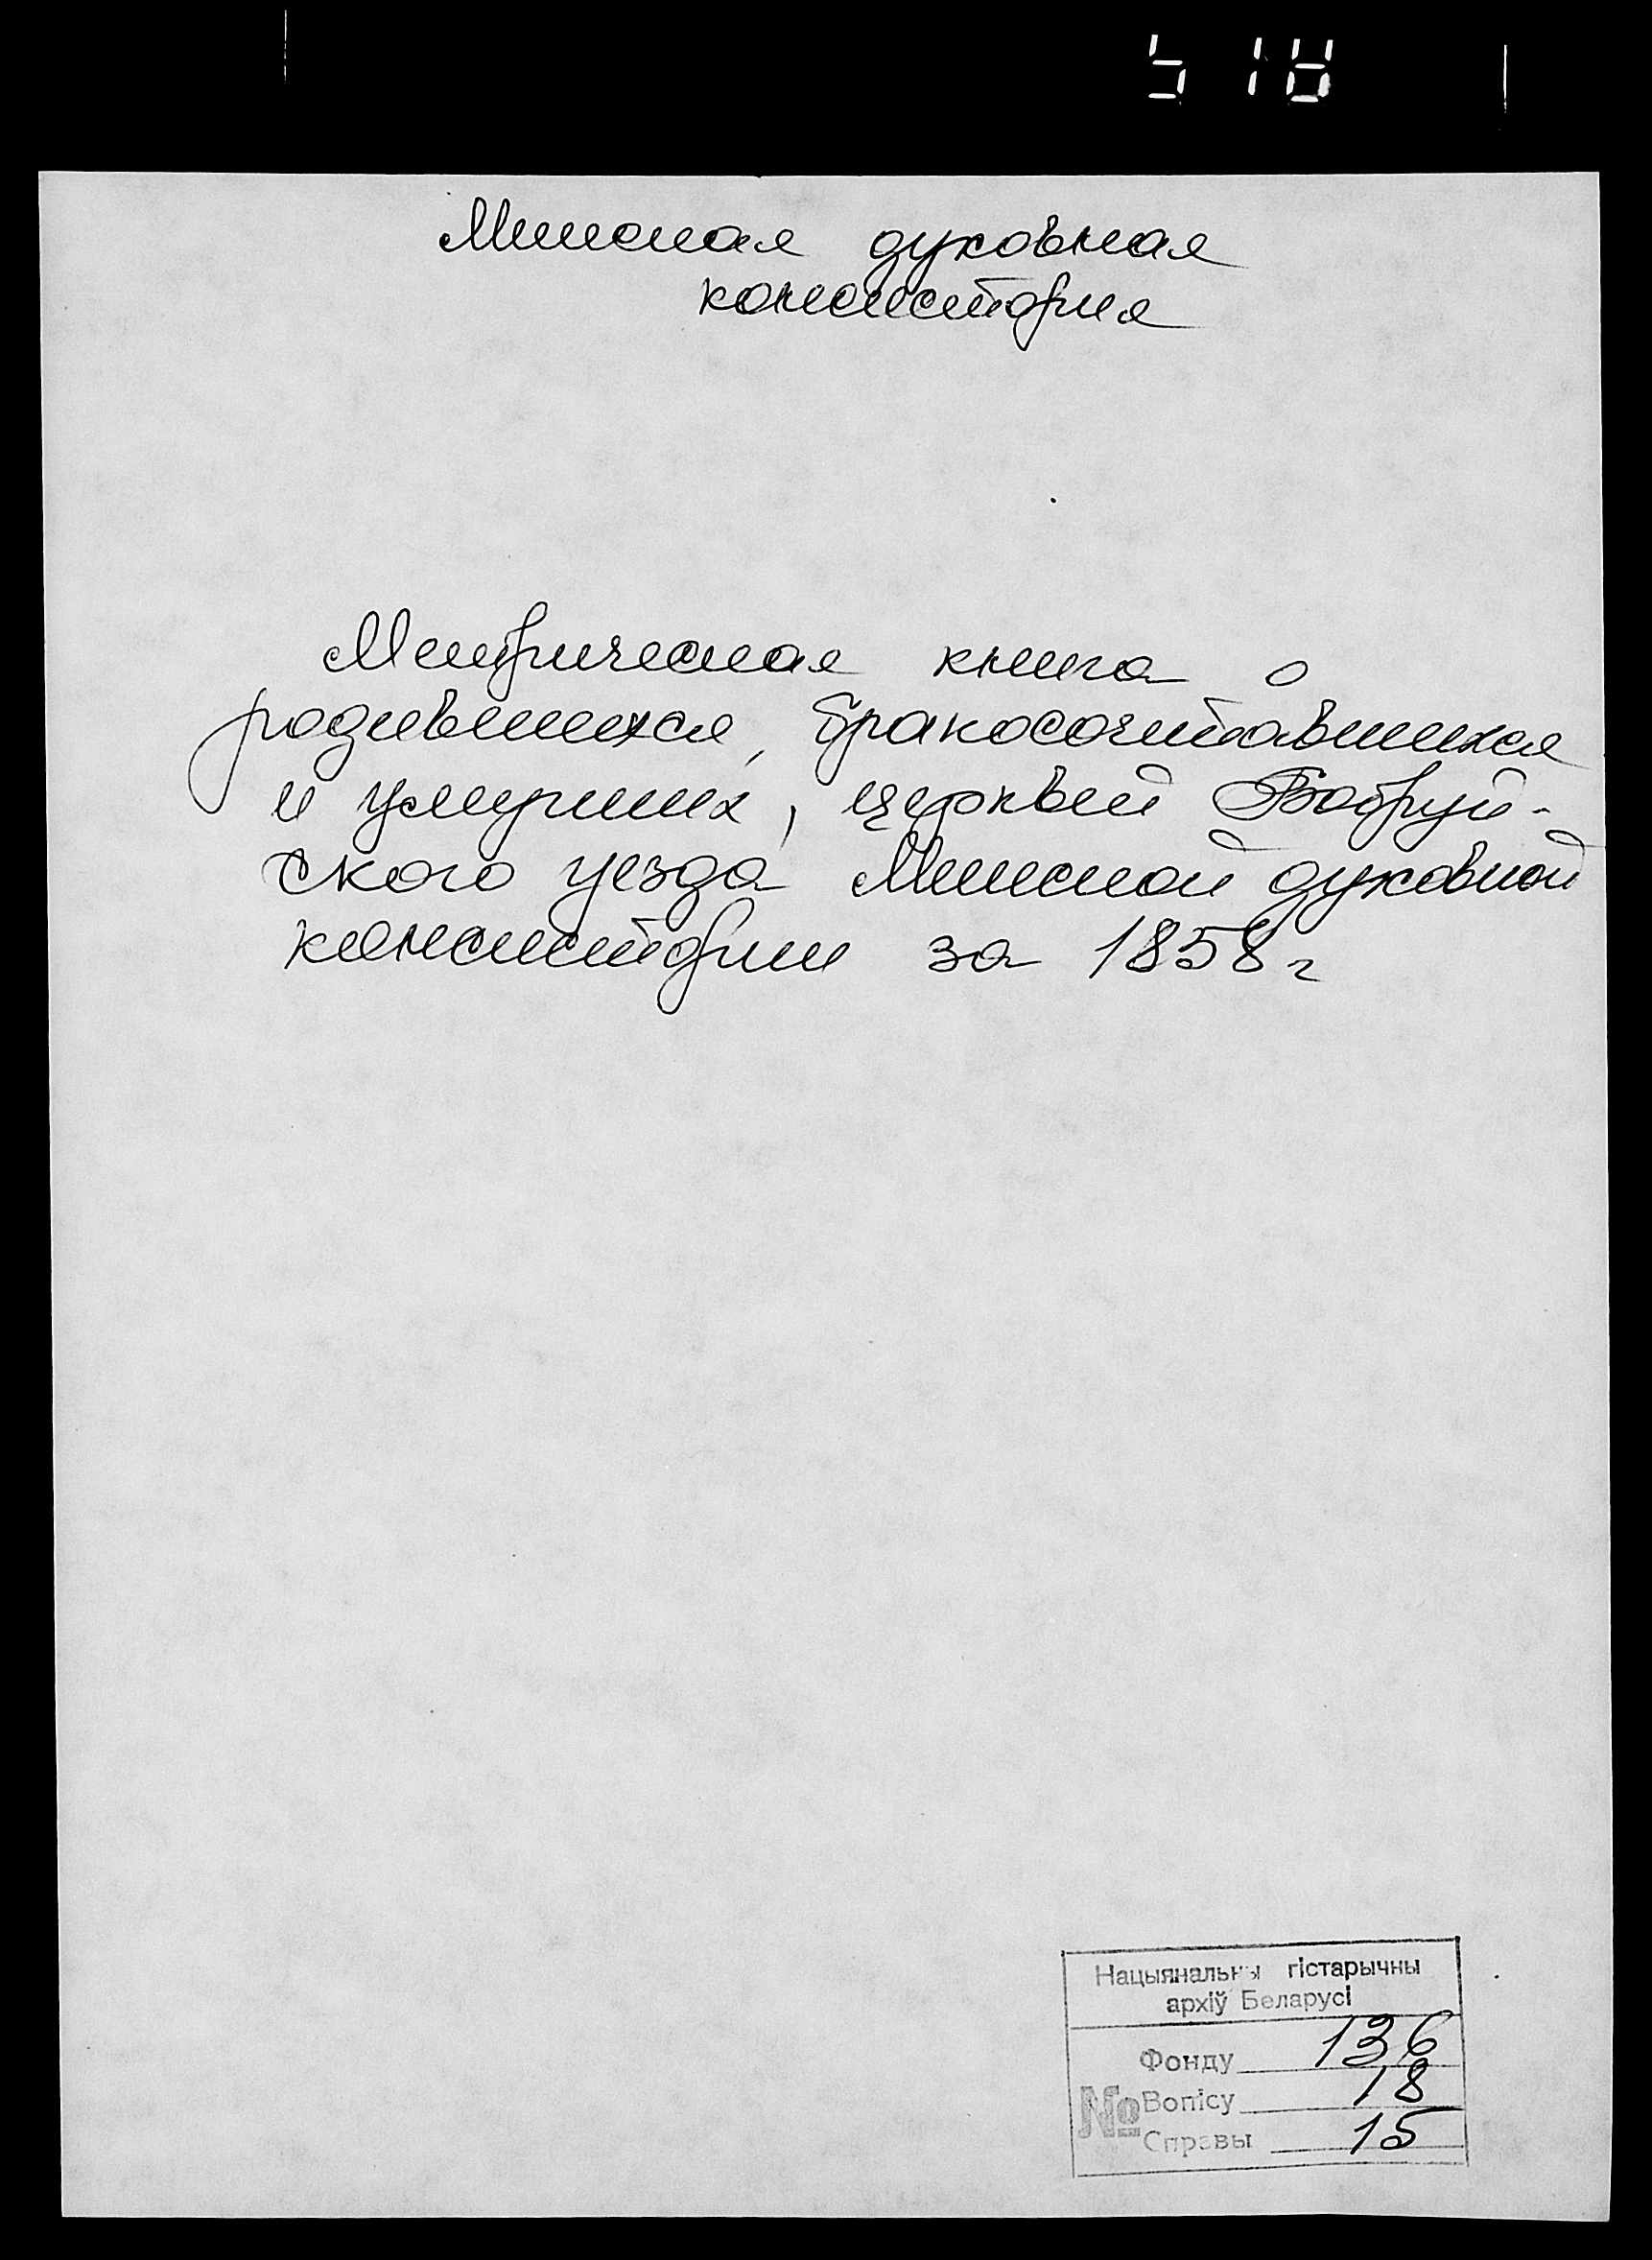 518
Минская духовная
консистория
Метрическая книга о
родившихся, бракосочитавшихся
и умерших, церквей Бобруй-
ского уезда Минской духовной
консистории за 1858 г
Нацыянальны гістарычны
архіў Беларусі
Фонду 136
№ Вопісу 18
Справы 15